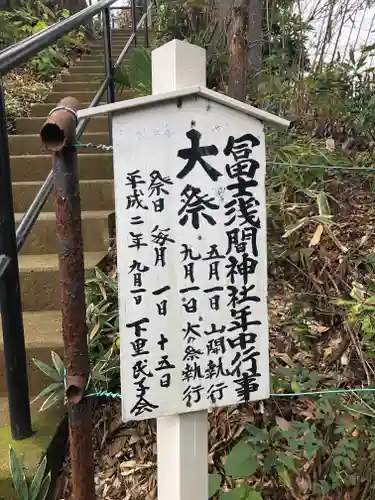 冨士浅間神社年中行事
大祭
五月一日 山開祭執行
九月一日 大祭執行
祭日 毎月 一日 十五日
平成二年九月一日 下里氏子会